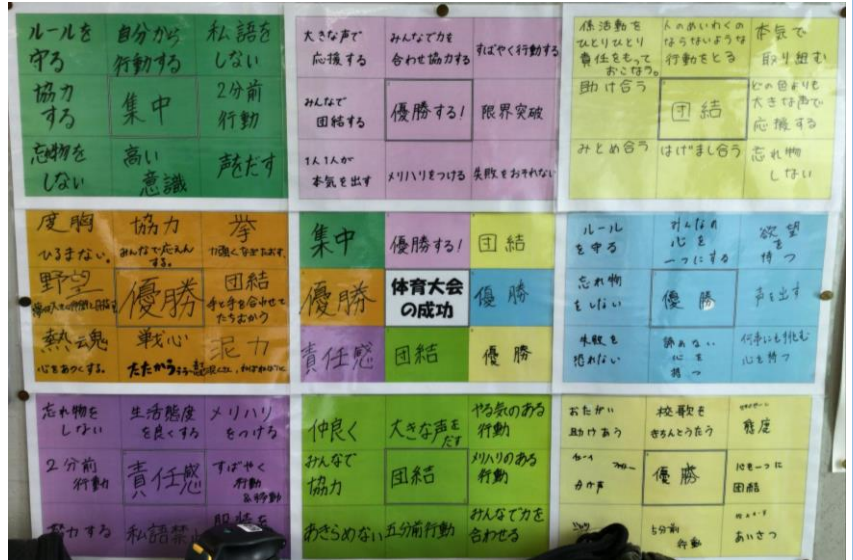 ルールを 守る
自分から 行動する
私語を しない
協力 する
集中
2分前 行動
忘れ物を しない
高い 意識
声をだす
大きな声で 応援する
みんなで力を 合わせ協力する
すばやく行動する
みんなで 団結する
優勝する!
限界突破
1人1人が 本気を出す
メリハリをつける
失敗をおそれない
係活動を ひとりひとり 責任をもって おこなう。
人のめいわくの ならないような 行動をとる
本気で 取り組む
助け合う
団結
どの色よりも 大きな声で 応援する
みとめ合う
はげまし合う
忘れ物 しない
度胸 ひるまない。
協力 みんなで応えん する。
挙
野望
優勝
団結 手と手を合わせて たちむかう
熱魂 心をあつくする。
戦心 たたかう
集中
優勝する!
団結
優勝
体育大会 の成功
優勝
責任感
団結
優勝
ルール を守る
みんなの 心を 一つにする
欲望 を 持つ
忘れ物 をしない
優勝
声を出す
失敗を 恐れない
諦めない 心を 持つ
何事にも挑む 心を持つ
忘れ物を しない
生活態度 を良くする
メリハリ をつける
2分前 行動
責任感
すばやく 行動
努力する
私語禁止
仲良く
大きな声を だす
やる気のある 行動
みんなで 協力
団結
メリハリのある 行動
あきらめない
五分前行動
みんなで力を 合わせる
おたがい 助けあう
校歌を きちんとうたう
態度
優勝
心を一つに 団結
5分前 行動
あいさつ